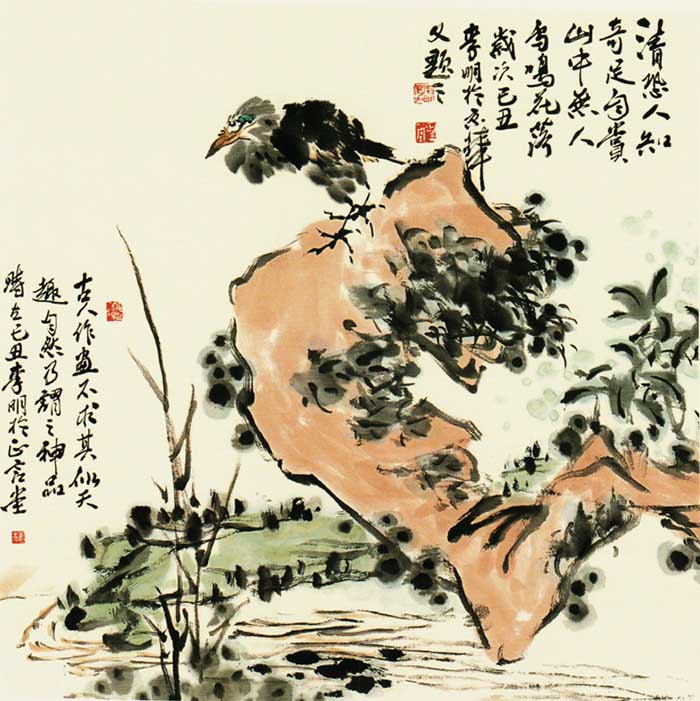 清恐人知
奇足自賞
山中無人
鳥鳴花落
歲次己丑
李明於京華
又題之
古人作畫不求其似天
趣自然乃謂之神品
時在己丑李明於正言堂